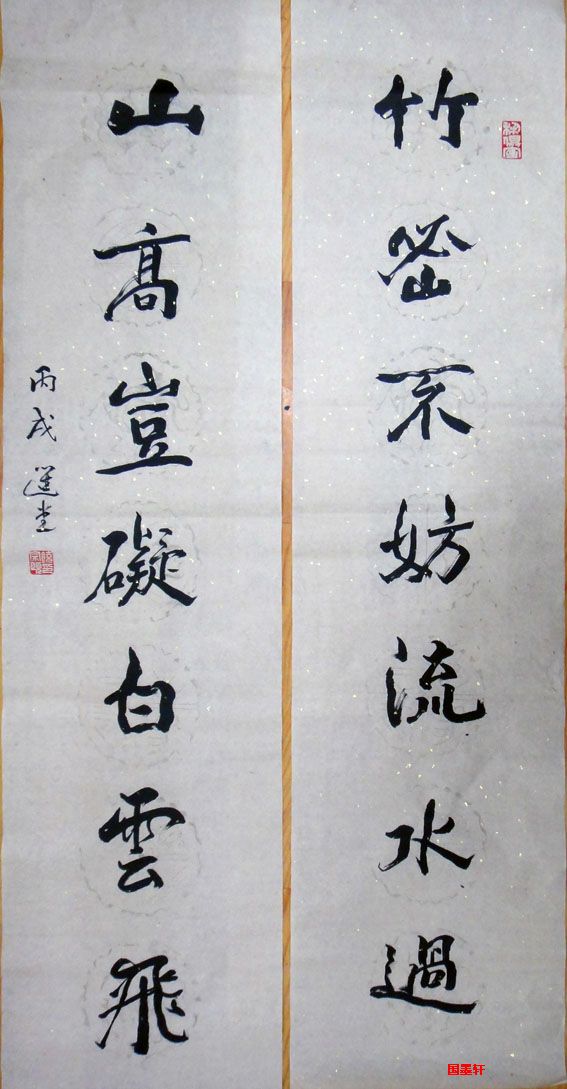 竹密不妨流水過
山高豈礙白雲飛
丙戌 選堂
国墨轩